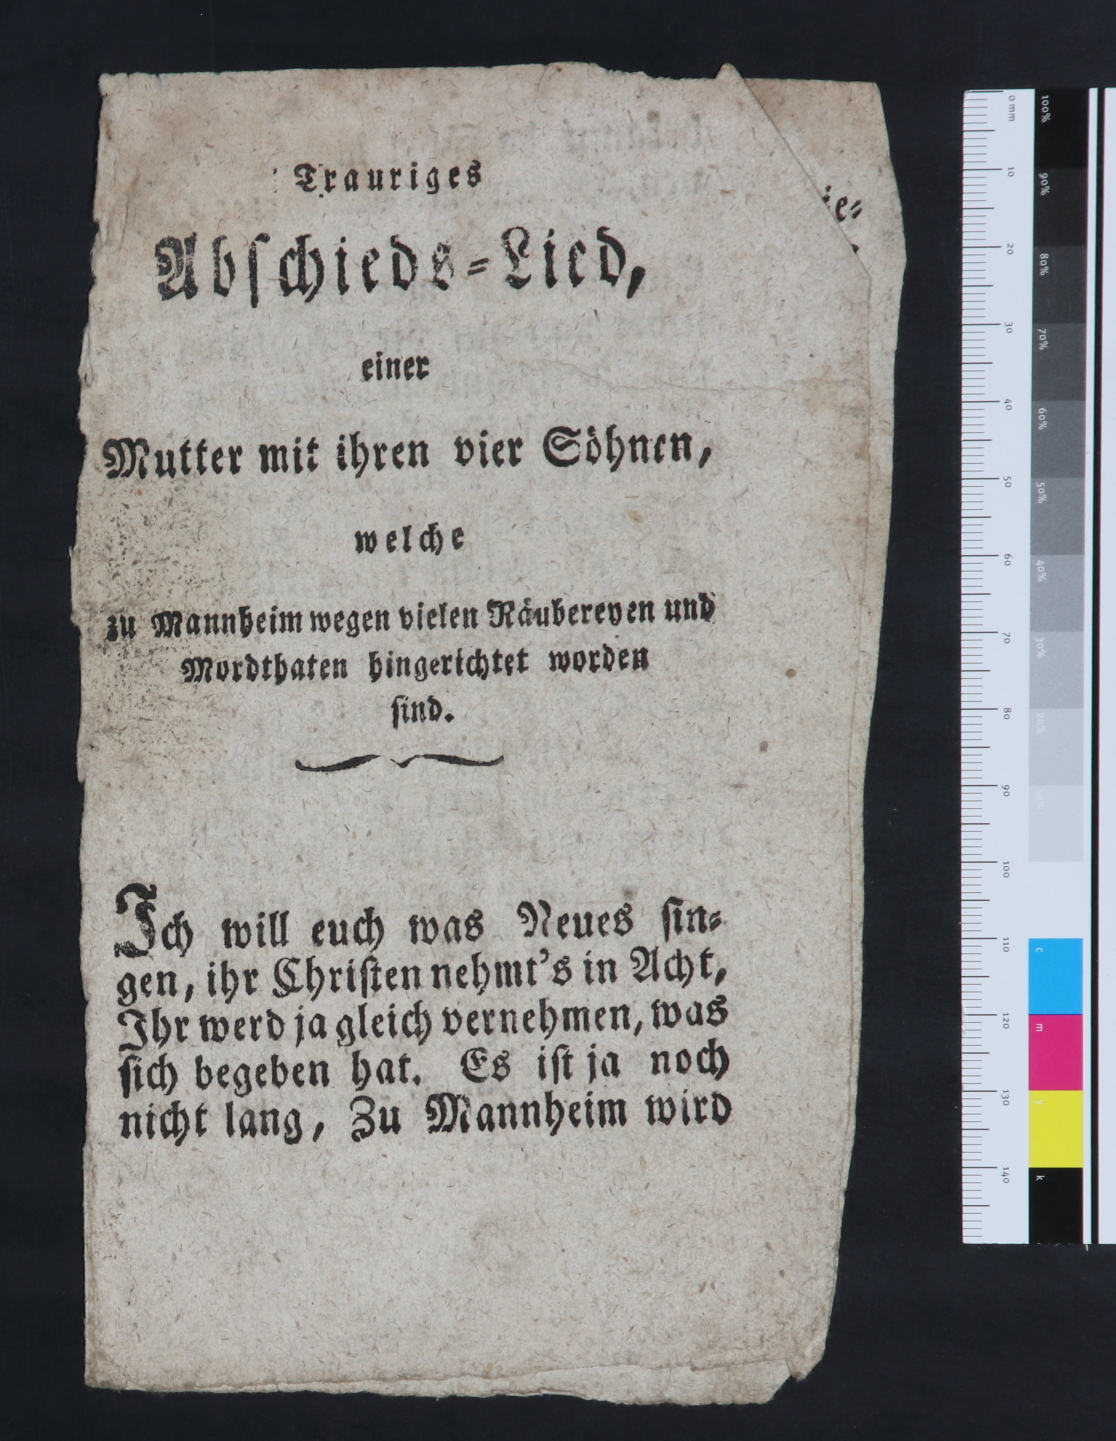 Trauriges
Abschieds-Lied,
einer
Mutter mit ihren vier Söhnen,
welche
zu Mannheim wegen vielen Räubereyen und
Mordthaten hingerichtet worden
sind.
Ich will euch was Neues sin-
gen, ihr Christen nehmt's in Acht,
Ihr werd ja gleich vernehmen, was
sich begeben hat. Es ist ja noch
nicht lang, Zu Mannheim wird
ie-
0 mm
10
20
30
40
50
60
70
80
90
100
110
120
130
140
100%
90%
80%
70%
60%
50%
40%
30%
20%
c
m
y
k